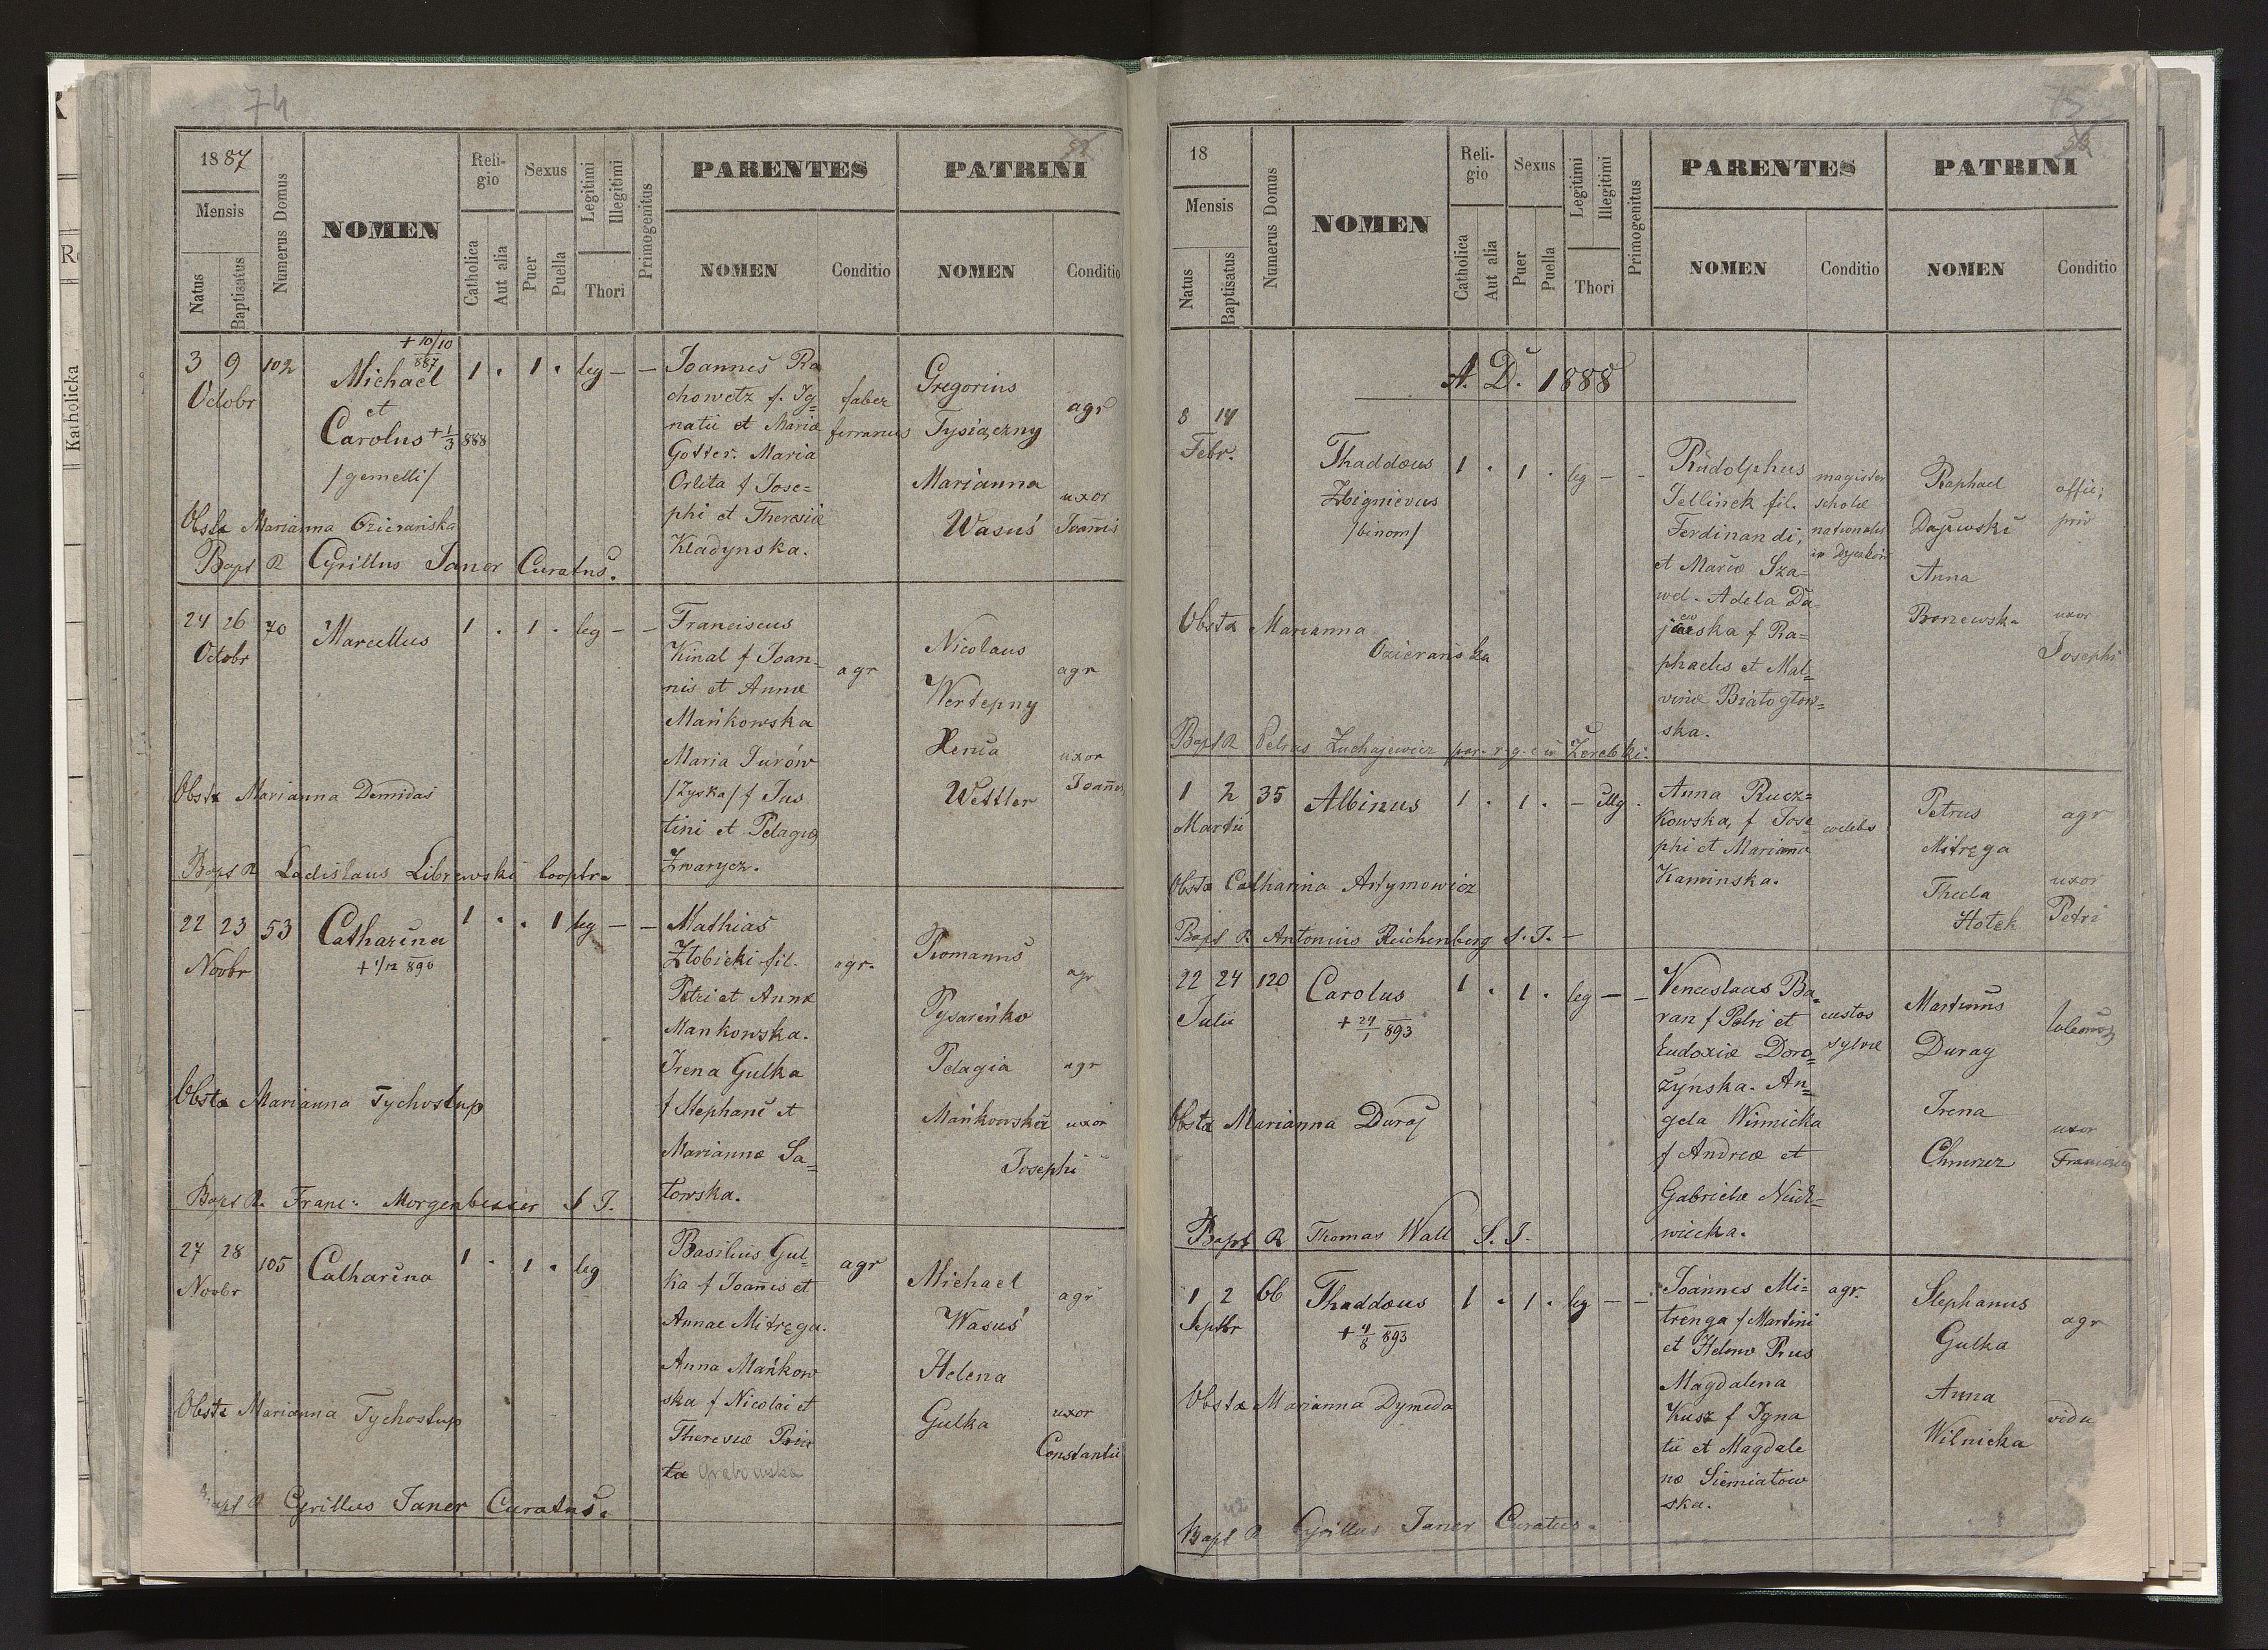 74
1887
Mensis
Natus
Baptisatus
Numerus Domus
NOMEN
Religio
Catholica
Aut alia
Sexus
Puer
Puella
Legitimi
Illegitimi
Thori
Primogenitus
PARENTES
NOMEN
Conditio
PATRINI
NOMEN
Conditio
3 9 102
Octobr
+ 10/10 887
Michael
et
Carolus + 1/3 888
/gemelli/
1 . 1 . leg — —
Joannes Ra
chowetz f. Ig=
natii et Mariæ
Gotter. Maria
Orlita f Jose=
phi et Theresiæ
Kladynska.
faber
ferrarius
Gregorius
Tysiączny
agr
Marianna
Wasuś
uxor
Joannis
Obstx Marianna Ozieranska
Bapt R Cyrillus Janer Curatus.
24 26 70
Octobr
Marcellus
1 . 1 . leg — —
Franciscus
Kinal f Joan-
nis et Annæ
Mańkowska
Maria Jurów
/Zyska/ f Jus
tini et Pelagiæ
Zwarycz.
agr
Nicolaus
Wertepny
agr
Xenia
Wettler
uxor
Joannis
Obstx Marianna Demidas
Bapt R Ladislaus Librewski Cooptr
22 23 53
Novbr
Catharina
+ 1/12 890
1 . . 1 leg — —
Mathias
Złobicki fil.
Petri et Annæ
Mankowska.
Irena Gulka
f Stephani et
Mariannæ Sa=
towska.
agr.
Romanus
Pysarenko
agr
Pelagia
Mańkowska
agr
uxor
Josephi
Obstx Marianna Tychostup
Bapt R. Franc: Morgenbesser S J.
27 28 105
Novbr
Catharina
1 . 1 . leg
Basilius Gul=
ka f Joannis et
Annae Mitręga.
Anna Mańkow
ska f Nicolai et
Theresiæ
Grabowska
agr
Michael
Wasuś
agr
Helena
Gulka
uxor
Constantii
Obstx Marianna Tychostup
Bapt R Cyrillus Janer Curatus.
75
18
Mensis
Natus
Baptisatus
Numerus Domus
NOMEN
Religio
Catholica
Aut alia
Sexus
Puer
Puella
Legitimi
Illegitimi
Thori
Primogenitus
PARENTES
NOMEN
Conditio
PATRINI
NOMEN
Conditio
A. D. 1888
8 14
Febr.
Thaddæus
Zbignievus
/binom/
1 . 1 . leg — -
Rudolphus
Jellinek fil.
Ferdinandi,
et Mariæ Sza-
wel. Adela Da-
jewska f Ra=
phaelis et Mal=
vinæ Białogłow=
ska.
magister
scholæ
nationalis
in
Raphael
Dajewski
offic;
priv
Anna
uxor
Josephi
Obstx Marianna
Ozieranska
Bapt R Petrus Zuchajewicz par. r. g. c in Zerebki.
1 2 35
Martii
Albinus
1 . 1 . — illeg .
Anna Rucz=
kowska, f Jose
phi et Mariannæ
Kaminska.
coelebs
Petrus
Mitręga
agr
Thecla
Hotek
uxor
Petri
Obstx Catharina Artymowicz
Bapt R Antonius Reichenberg S. J. —
22 24 120
Julii
Carolus
+ 24/1 893
1 . 1 . leg — —
Venceslaus Ba=
ran f Petri et
Eudoxiæ Doro=
żyńska. An=
gela Winnicka
f Andreæ et
Gabrielæ
wiecka.
custos
sylvæ
Martinus
Duraj
Irena
uxor
Obstx Marianna Duraj
Bapt R Thomas Wall S. J.
1 2 66
Septbr
Thaddæus
+ 4/8 893
1 . 1 . leg — —
Joannes Mi=
trenga f Martini
et Helenæ Prus
Magdalena
Kusz f Igna
tii et Magdale
næ Siemiatow
ska.
agr.
Stephanus
Gulka
agr
Anna
Wilnicka
vidu
Obstx Marianna Dymeda
42
Bapt R Cyrillus Janer Curatus.
Katholicka